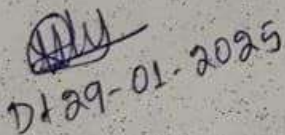 Dt 29-01-2025